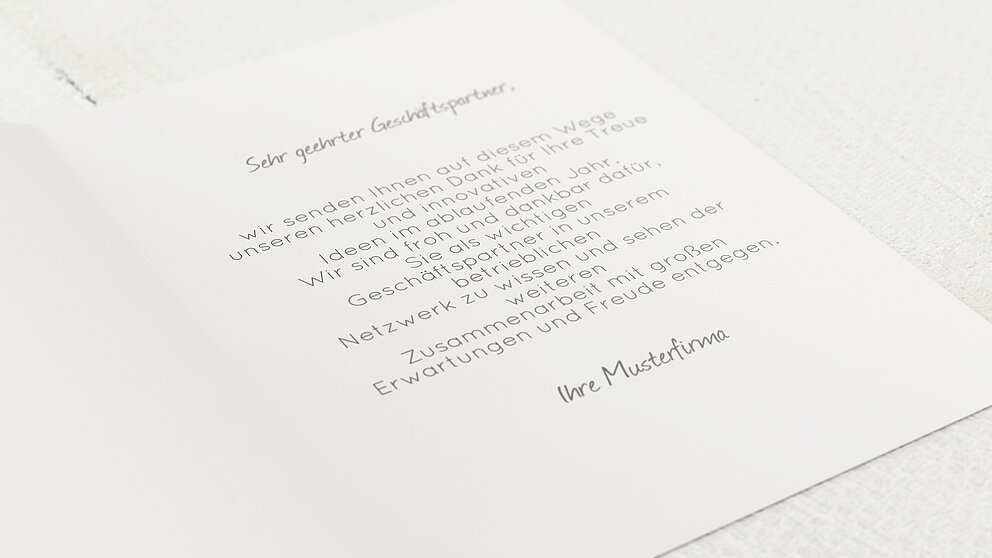 Sehr geehrter Geschäftspartner,
wir senden Ihnen auf diesem Wege
unseren herzlichen Dank für Ihre Treue
und innovativen
Ideen im ablaufenden Jahr.
Wir sind froh und dankbar dafür,
Sie als wichtigen
Geschäftspartner in unserem
betrieblichen
Netzwerk zu wissen und sehen der
weiteren
Zusammenarbeit mit großen
Erwartungen und Freude entgegen.
Ihre Musterfirma